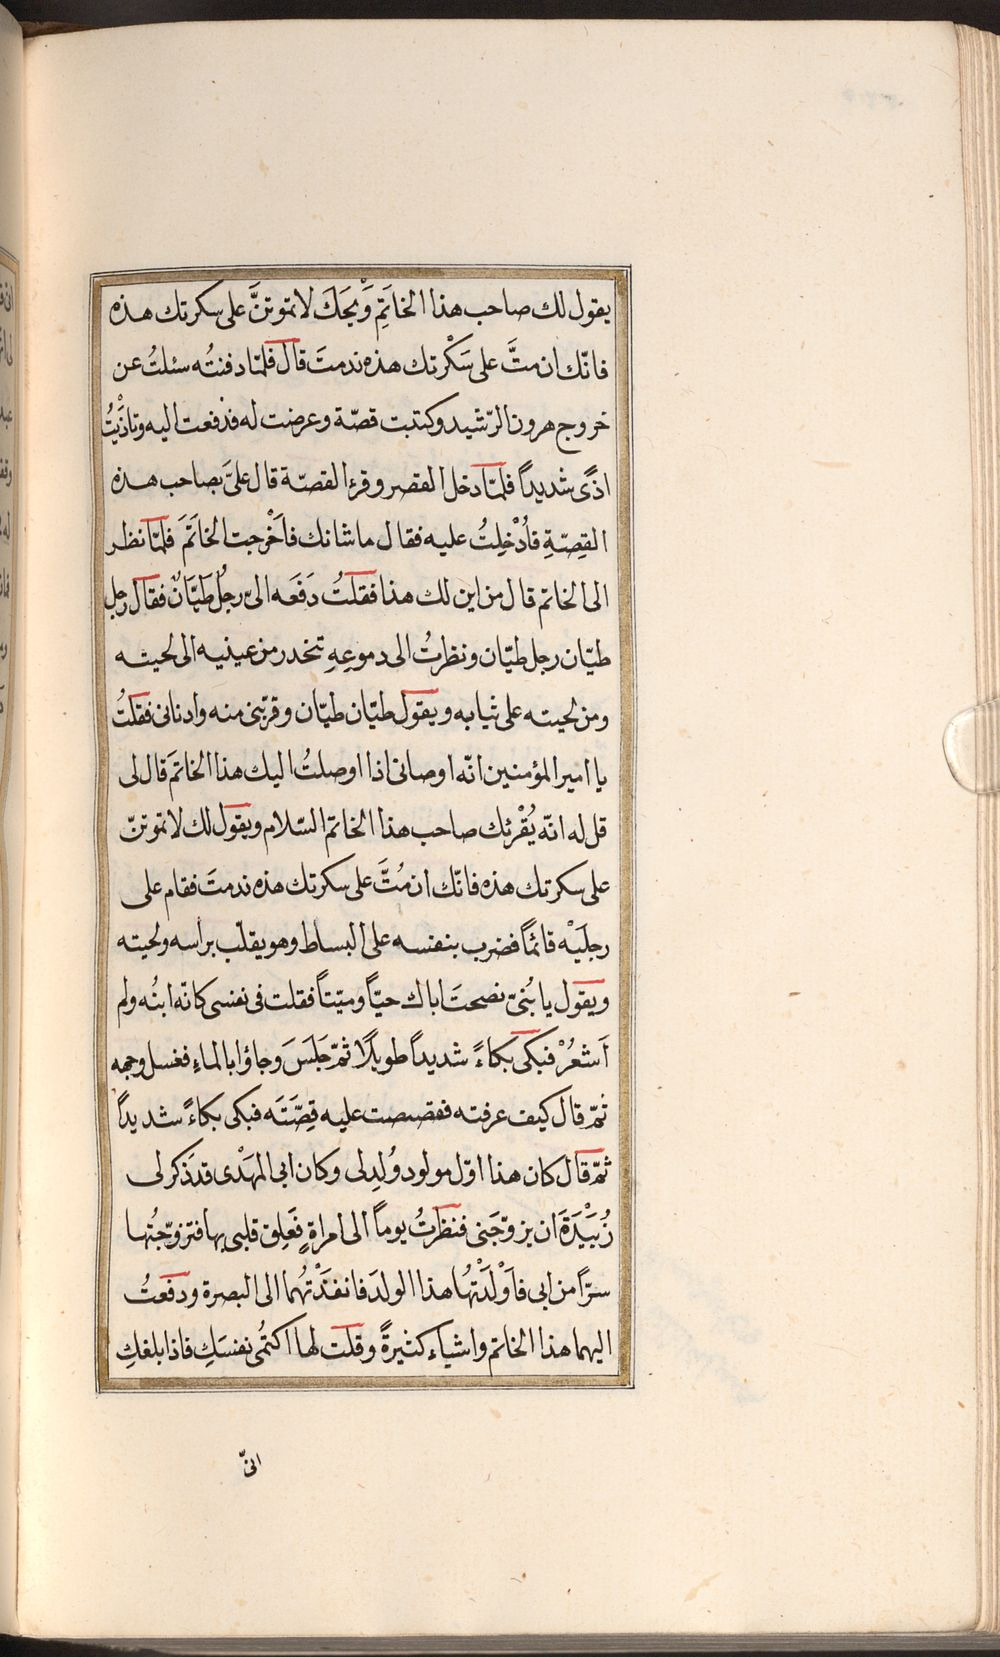 يقول لك صاحب هذا الخاتِمِ وَيْحَكَ لا تموتنَّ على سكرتك هذه
فانّك ان متَّ على سَكْرتك هذه ندمتَ قال فلمّا دفنتُه سئلتُ عن
خروج هرون الرّشيد وكتبت قصّة وعرضت له فدفعت اليه وتاذّيْتُ
اذًى شديداً فلمّا دخل القصر وقرء القصّة قال علىَّ بصاحب هذه
القِصّةِ فاُدْخِلتُ عليه فقال ما شانك فاَخْرجت الخاتَمَ فلمّا نظر
الى الخاتم قال من اين لك هذا فقلتُ دَفَعَه الىّ رجُل طَيَّانٌ فقال رجل
طيّان رجل طيّان ونظرتُ الى دموعِهِ تنحدر من عينيه الى لحيته
ومن لحيته على ثيابه ويقول طيّان طيّان وقرّبنى منه وادنانى فقلتُ
يا امير المؤمنين انّه اوصانى اذا اوصلتُ اليك هذا الخاتمَ قال لى
قل له انّه يُقْرئك صاحب هذا الخاتم السّلام ويقول لك لا تموتنّ
على سكرتك هذه فانّك ان مُتَّ على سكرتك هذه ندمتَ فقام على
رجلَيْه قائماً فضرب بنفسه على البساط وهو يقلّب براسه ولحيته
ويقول يا بُنىّ نصحتَ اباك حيّاً وميّتاً فقلت فى نفسى كانّه ابنُه ولم
اَشعُرْ فبكى بكاءً شديداً طويلًا ثمّ جَلَسَ وجاؤا بالماءِ فغسل وجهه
ثمّ قال كيف عرفته فقصصت عليه قِصَّتَه فبكى بكاءً شديداً
ثمّ قال كان هذا اوّل مولود وُلِد لى وكان ابى المهَدْى قد ذكر لى
زُبَيْدَةَ ان يزوّجَنى فنظرتُ يوماً الى امراةٍ فَعَلِق قلبى بها فتزوّجتُها
سرّاً من ابى فاَوْلَدْتُها هذا الولدَ فانفَذْتُهما الى البصرة ودفعتُ
اليهما هذا الخاتم واشياء كثيرةً وقلت لها اكتمى نفسَكِ فاذا بلغكِ
انّى